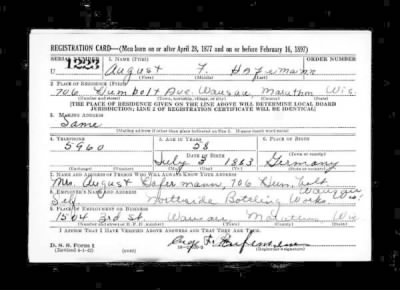 REGISTRATION CARD—(Men born on or after April 28, 1877 and on or before February 16, 1897)
SERIAL NUMBER 1. NAME (Print) ORDER NUMBER
U 1223 August F. Hafemann
2. PLACE OF RESIDENCE (Print)
706 Humbolt Ave. Wausau Marathon Wis.
(Number and street) (Town, township, village, or city) (County) (State)
[THE PLACE OF RESIDENCE GIVEN ON THE LINE ABOVE WILL DETERMINE LOCAL BOARD
JURISDICTION; LINE 2 OF REGISTRATION CERTIFICATE WILL BE IDENTICAL]
3. MAILING ADDRESS
Same
[Mailing address if other than place indicated on line 2. If same insert word same]
4. TELEPHONE 5. AGE IN YEARS 6. PLACE OF BIRTH
5960 58
DATE OF BIRTH (Town or county)
July 3 1883 Germany
(Exchange) (Number) (Mo.) (Day) (Yr.) (State or country)
7. NAME AND ADDRESS OF PERSON WHO WILL ALWAYS KNOW YOUR ADDRESS
Mrs. August Hafermann, 706 Humbold Wausau
8. EMPLOYER'S NAME AND ADDRESS
Self Northside Bottling Works. Wis.
9. PLACE OF EMPLOYMENT OR BUSINESS
1504 3rd St. Wausau, Marathon Wis
(Number and street or R. F. D. number) (Town) (County) (State)
I AFFIRM THAT I HAVE VERIFIED ABOVE ANSWERS AND THAT THEY ARE TRUE.
D. S. S. Form 1
(Revised 4-1-42) (over)